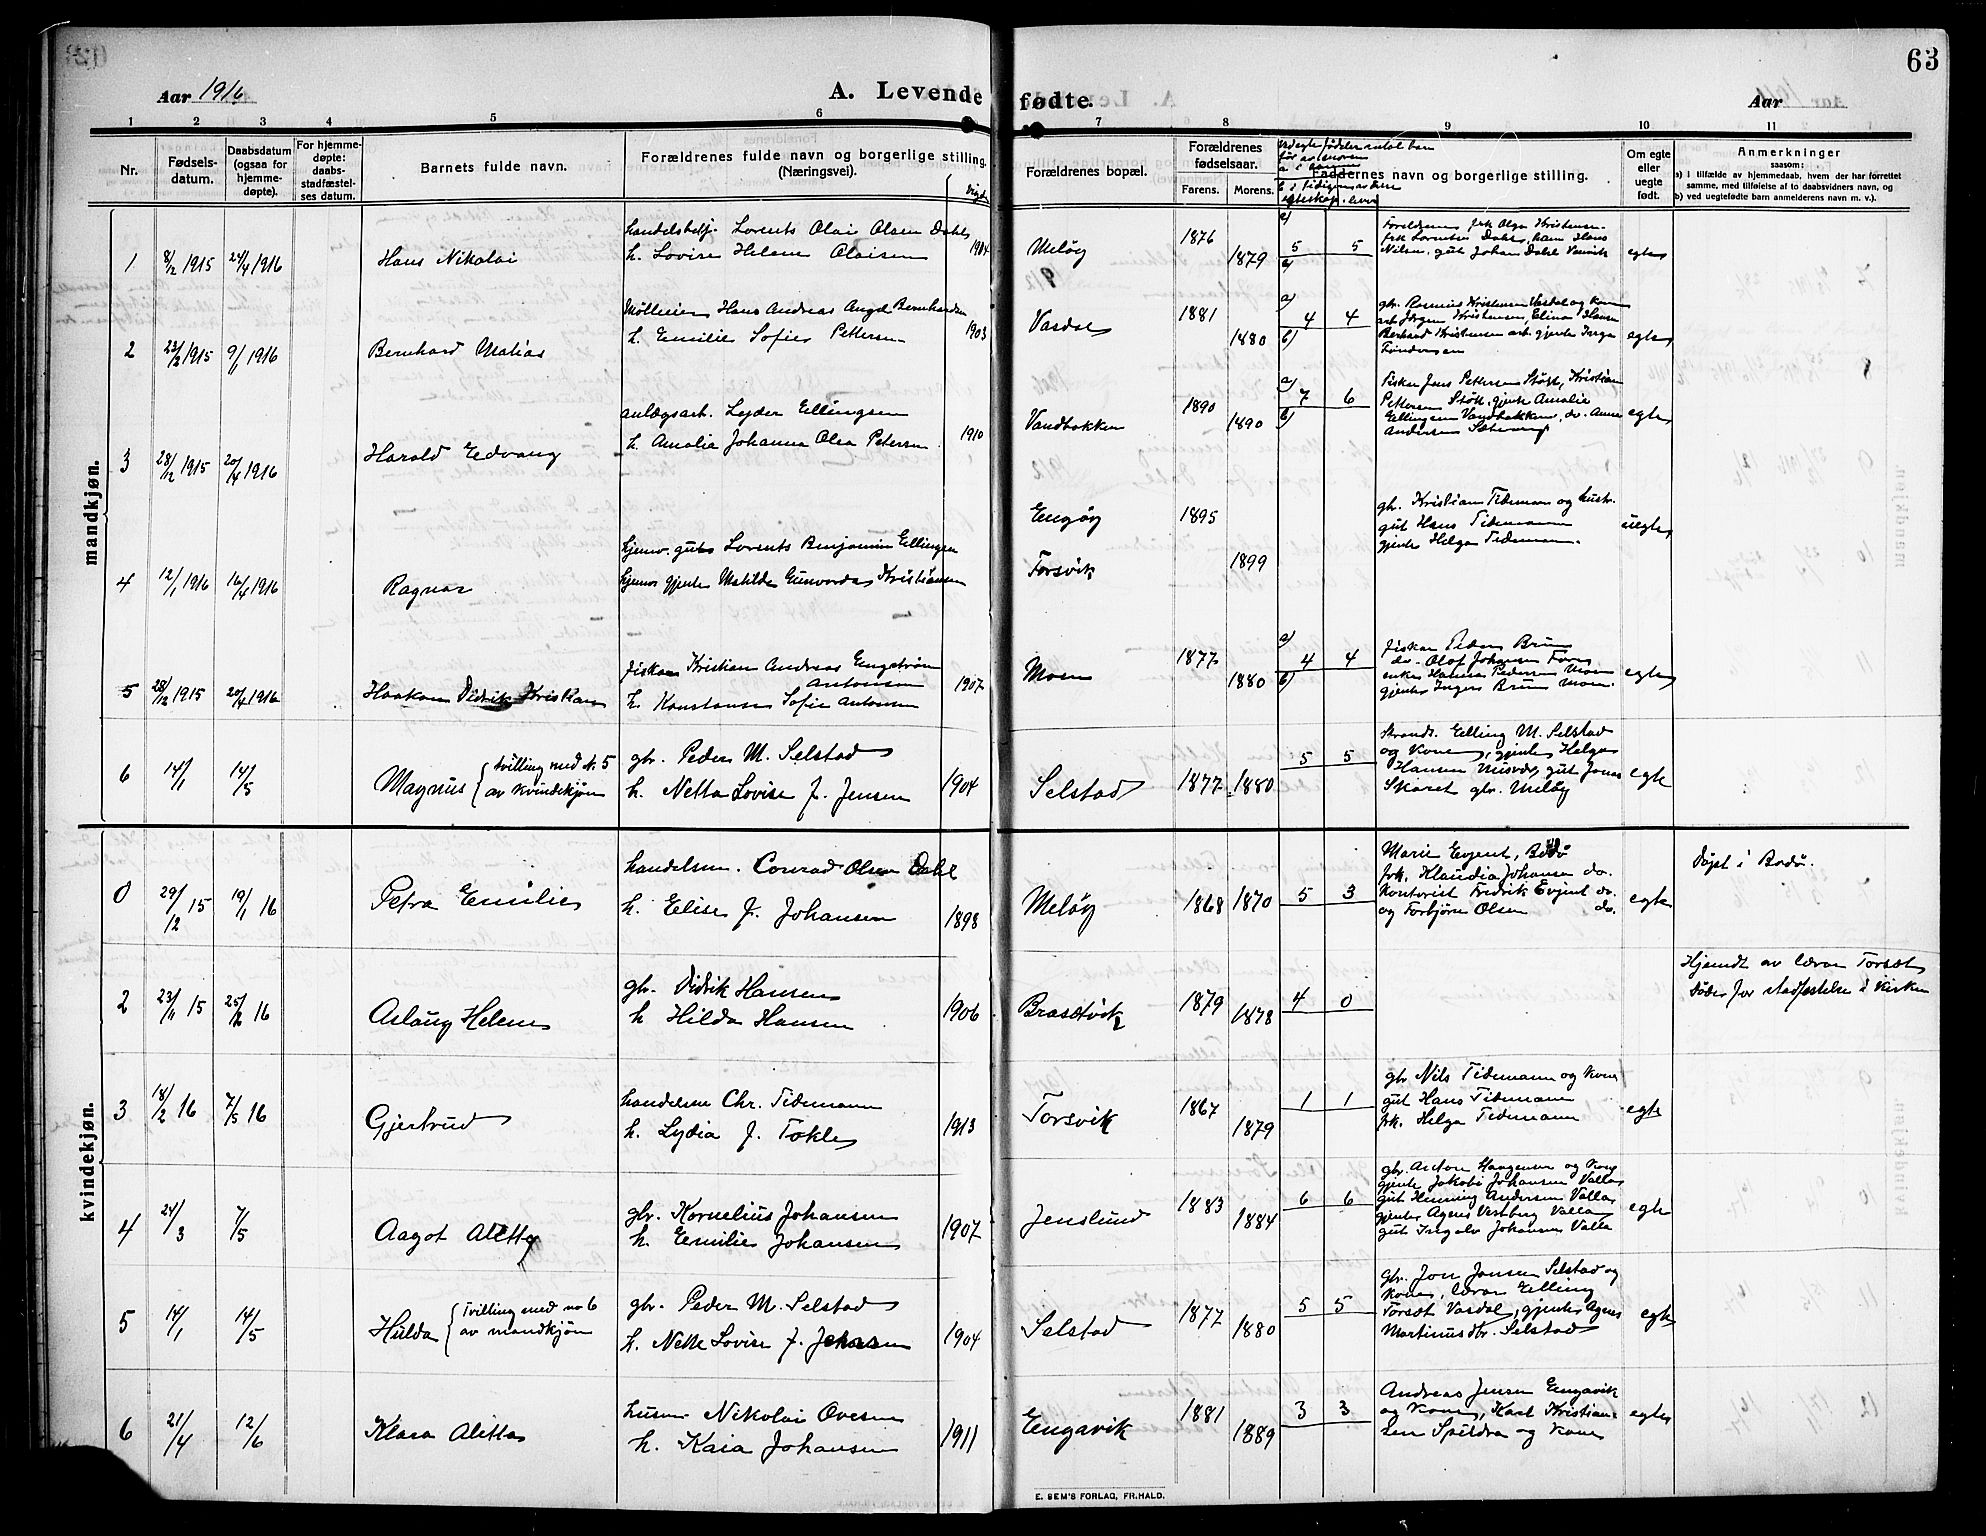 63
Aar 1916
A. Levende fødte.
Aar
1 2 3 4 5 6 7 8 9 10 11
Nr.
Fødsels-
datum.
Daabsdatum
(ogsaa for
hjemme-
døpte).
For hjemme-
døpte:
daabs-
stadfæstel-
ses datum.
Barnets fulde navn.
Forældrenes fulde navn og borgerlige stilling.
(Næringsvei).
Forældrenes bopæl.
Forældrenes
fødselsaar.
Farens. Morens.
Faddernes navn og borgerlige stilling.
Om egte
eller
uegte
født.
Anmerkninger
saasom:
a) i tilfælde av hjemmedaab, hvem der har forrettet
samme, med tilføielse af to daabsvidners navn, og
b) ved uegtefødte barn anmelderens navn m. v.).
mandkjøn.
1 8/12 1915 24/4 1916 Hans Nikolai
handelsbetj. Lorents Olai Olsen Dahl
h. Lovise Helene Olaisen
1904 Meløy 1876 1879 a) 5 5 b)
Nilsen, gut Johan Dahl
egte
2 23/12 1915 9/1 1916 Bernhard Matias
Hans Andreas Angel Bernhardsen
h. Emilie Sofie Pettersen
1903 Vasdal 1881 1880 a) 4 4 b)
gbr. Rasmus Kristensen Vasdal og kone
arb. Jørgen Kristensen, Elina Hansen
egte
3 28/12 1915 20/4 1916 Harald Edvang
anlægsarb. Lyder Ellingsen
h. Amalia Johanna Olea Petersen
1910 Vandbakken 1890 1890 a) 7 6 b)
Fisker Jens Pettersen Støtt, Kristian
Pettersen Støtt, gjente Amalie
Ellingsen Vandbakken, do. Anna
Andersen
egte
4 12/1 1916 16/4 1916 Ragnar
hjemv. gut Lorents Benjamin Ellingsen
hjemv gjente Matilde Gunvorda Kristiansen
Engøy 1895
Forsvik 1899
gbr. Kristian Tidemann og hustr.
gut Hans Tidemann
gjente Helga Tidemann.
uegte
5 28/12 1915 20/4 1916 Haakon Didrik Kristian
fisker Kristian Andreas Engstrøm
Antonsen
h. Konstanse Sofie Antonsen
1907 Moen 1877 1880 a) 4 4 b)
fisker Peder Bruun
do. Olaf Johansen
enke Hanna Pedersen Moen
gjente Inger Bruun Moen.
egte
6 14/1 14/5 Magnus { tvilling med N. 5
av kvindekjøn
gbr. Peder M. Selstad
h. Netta Lovise f. Jensen
1904 Selstad 1877 1880 5 5
Strands. Elling M. Selstad
og Kone, gjente Helga
Hansen Misvær, gut Jonas
Skaret gbr. Meløy
egte
kvindekjøn.
0 29/12 15 19/1 16 Petra Emilie
handelsm. Conrad Olsen Dahl
h. Elise f. Johansen
1898 Meløy 1868 1870 5 3
Marie Evjent, Bodø
frk. Klaudia Johansen do.
Kontorist Fredrik Evjent do.
og Torbjørn Olsen do.
egte
Døpt i Bodø.
2 23/1 15 25/2 16 Aslaug Helene
gbr. Didrik Hansen
h Hilda Hansen
1906 Brasetvik 1879 1878 4 0
Hjemdt av lærer Torsæt
Døde før stadfæstelse i Kirken
3 18/2 16 7/5 16 Gjertrud
handelsm Chr. Tidemann
h. Lydia f. Tokle
1913 Forsvik 1867 1879 1 1
gbr Nils Tidemann og Kone
gut Hans Tidemann
frk. Helga Tidemann
egte
4 24/3 7/5 Aagot Aletta
gbr. Kornelius Johansen
h. Emilie Johansen
1907 Jenslund 1883 1884 6 6
gbr. Anton Haagensen og Kone
gjente Jakobi Johansen Valla
gut Henning Andersen Valla
gjente Agnes Vestberg Valla
gut Ingolv Johansen Valla
egte
5 14/1 14/5 Hulda { Tvilling med no 6
av mandkjøn
gbr. Peder M. Selstad
h. Nette Lovise f. Jensen
1904 Selstad 1877 1880 5 5
gbr. Jon Jonsen Selstad og
Kone, lærer Elling
Torsæt Vasdal, gjente Agnes
Martinusdtr. Selstad
egte
6 21/4 12/6 Klara Alette
husm Nikolai Ovesen
h. Kaia Johansen
1911 Engavik 1881 1889 3 3
Andreas Jensen Engavik
og Kone, Karl Kristian-
sen Spildra og Kone
egte
E. SEM'S FORLAG, FR.HALD.